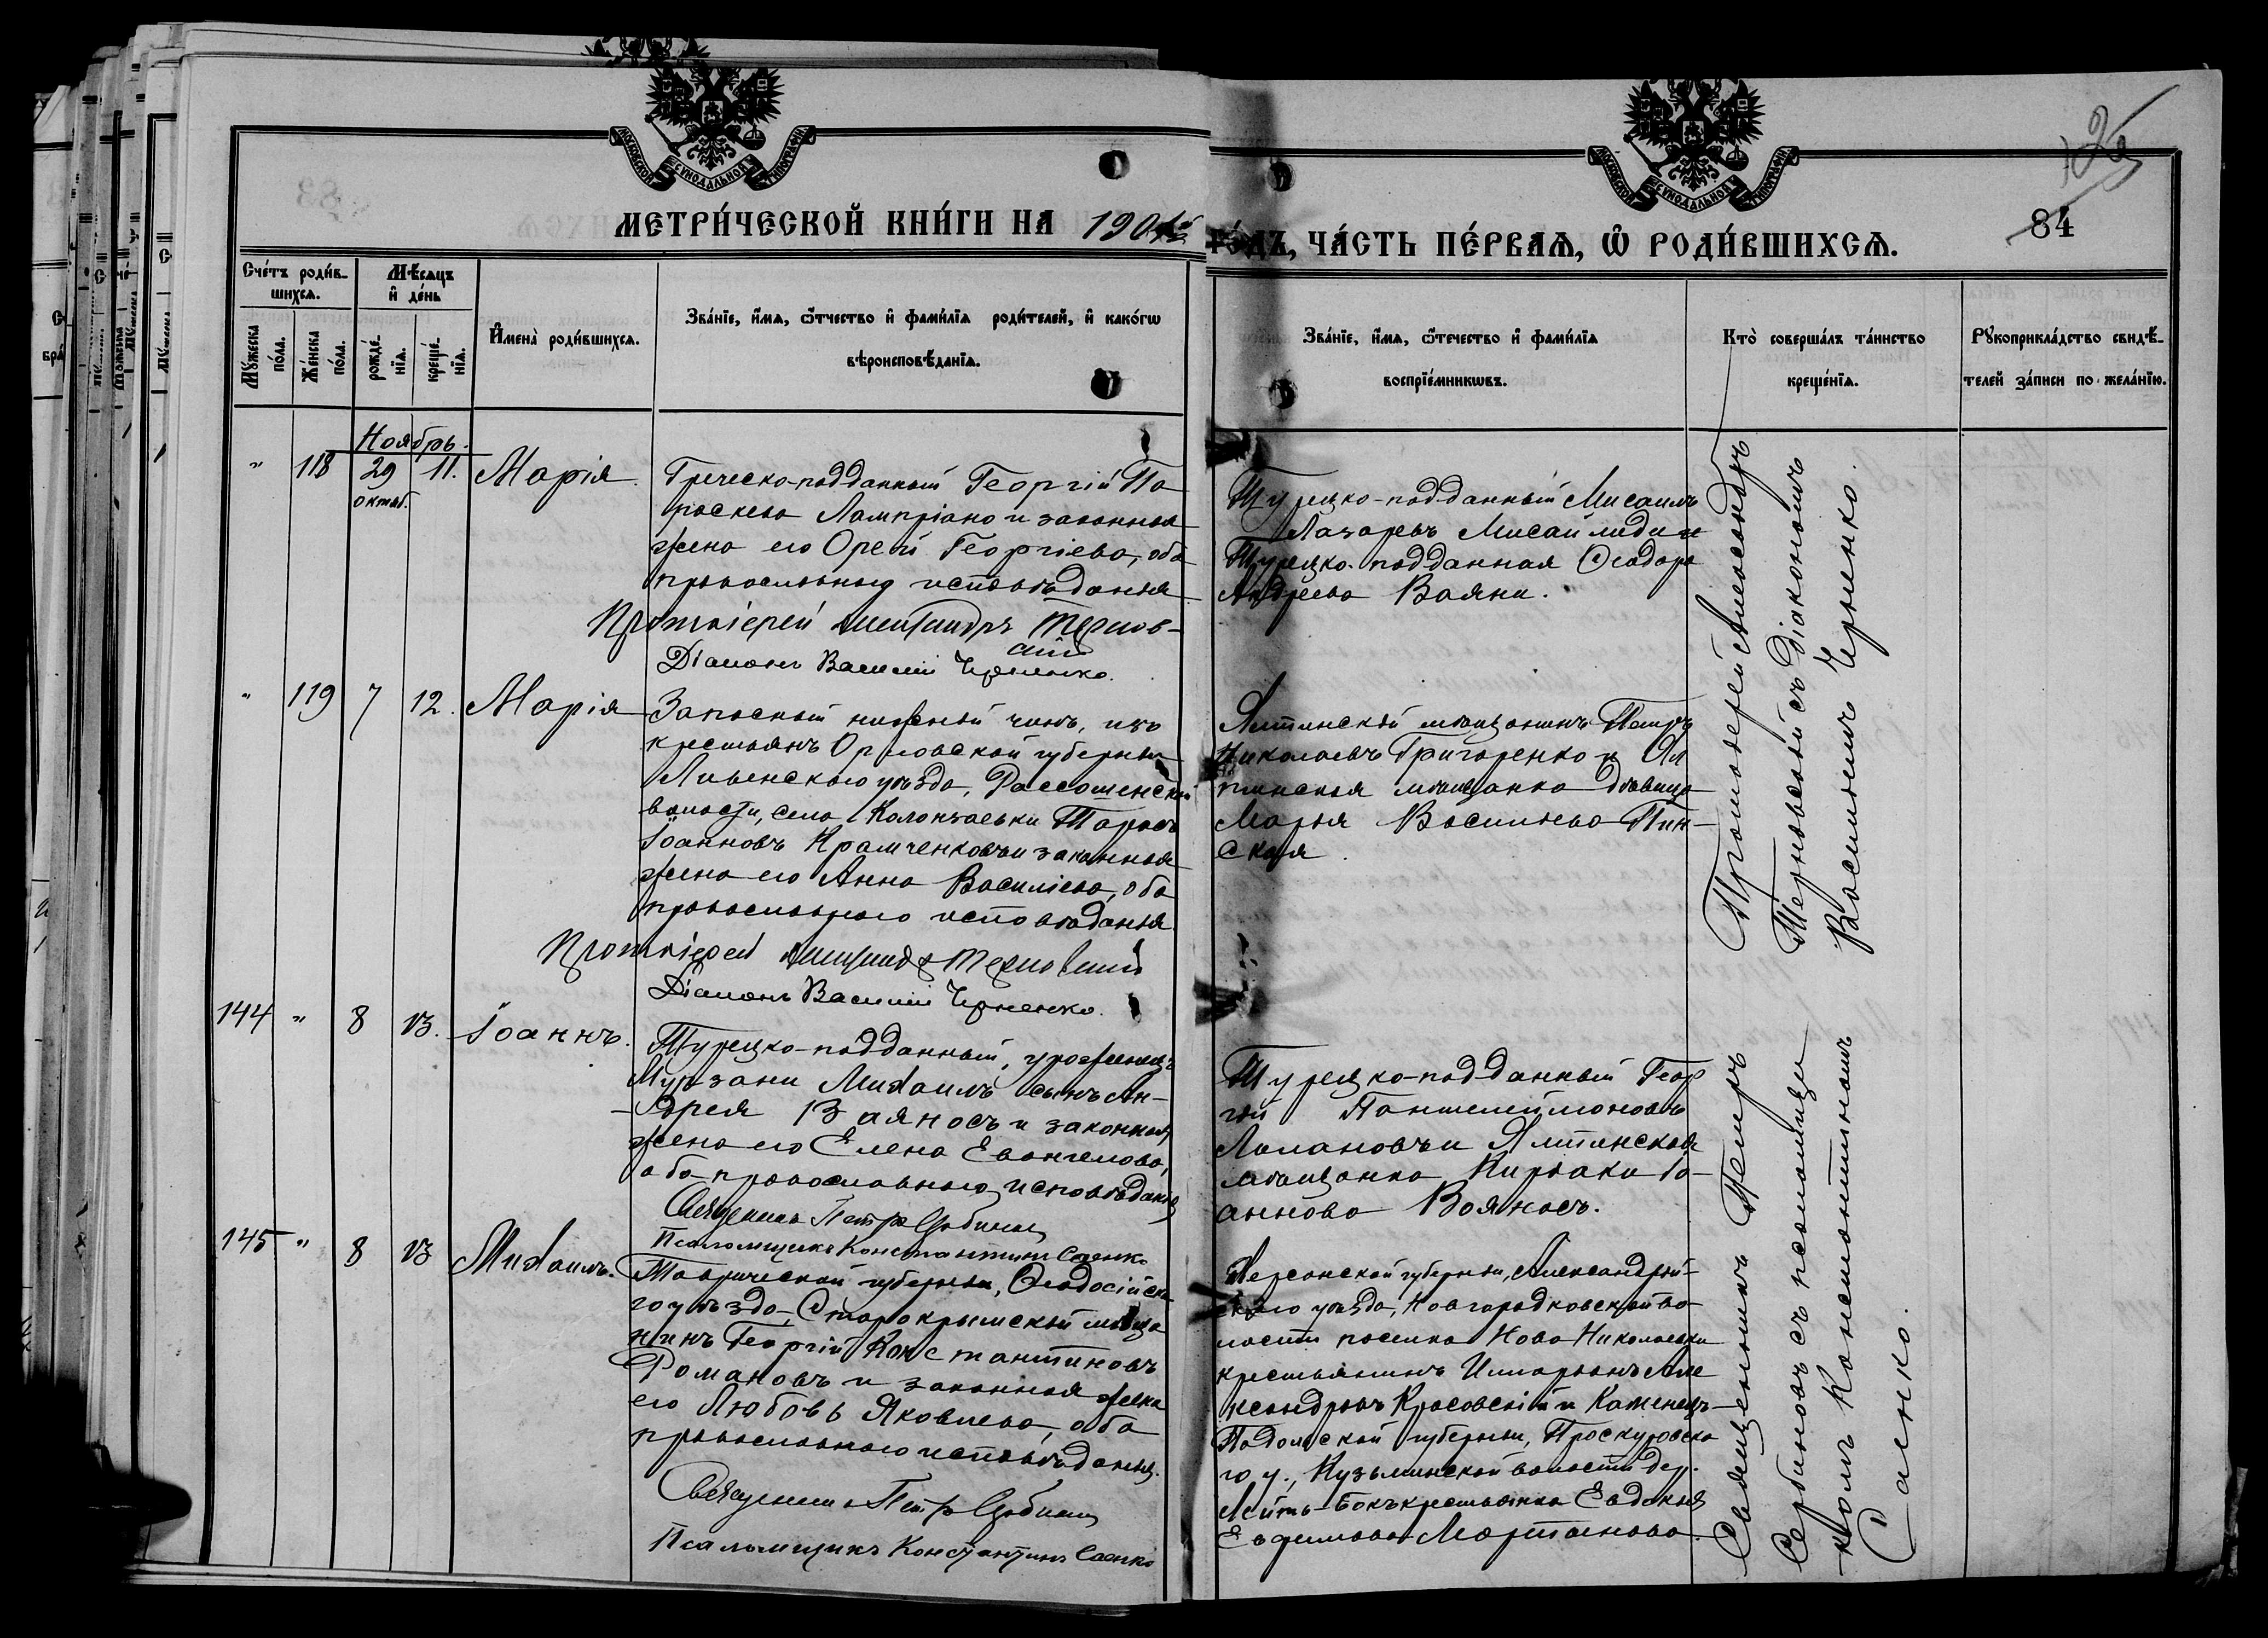 МЕТРИ́ЧЕСКОЙ КНИ́ГИ НА 190
ГО́ДЪ, ЧА́СТЬ ПЕ́РВАЯ, Ѿ РОДИ́ВШИХСЯ.
84
МОСКОВСКОЙ СѴНОДАЛЬНОЙ ТИПОГРАФІИ
МОСКОВСКОЙ СѴНОДАЛЬНОЙ ТИПОГРАФІИ
Сче́тъ роди́в-
шихся.
Мѣ́сяцъ
и҆ де́нь
Мꙋ́жеска
по́ла.
Же́нска
по́ла.
рожде́-
нїя.
креще́-
нїя.
И҆мена̀ роди́вшихся.
Зва́нїе, и҆́мя, ѻ҆́тчество и҆ фами́лїя роди́телей, и҆ како́гѡ
вѣроисповѣ́данїя.
Зва́нїе, и҆́мя, ѻ҆́течество и҆ фами́лїя
воспрїе́мникѡвъ.
Кто̀ соверша́лъ та́инство
креще́нїя.
Рꙋкоприкла́дство свидѣ́-
телей за́писи по жела́нїю.
Ноябрь.
" 118 29 11. Марія.
октяб.
Греческо-подданный Георгій Па-
раскева Лампріано и законная
жена его Орей Георгіева, оба
православнаго исповѣданія
Протоіерей Александръ Тернов-
скій
Діаконъ Василій Черненко.
Турецко-подданный Мисаилъ
Лазаревъ Мисаилиди и
Турецко-подданная Ѳеодора
Андреева Ваяни.
Протоіерей Александръ
Терновскій съ діакономъ
Василіемъ Черненко.
" 119 7 12. Марія
Запасный нижній чинъ, изъ
крестьянъ Орловской губерніи
Ливенского уѣзда, Россошенской
волости, села Тарасъ
Іоанновъ Крамченковъ и законная
жена его Анна Василіева, оба
православнаго исповѣданія.
Протоіерей Александръ Терновскій
Діаконъ Василій Черненко.
Ялтинскій мѣщанинъ Петръ
Николаевъ Григоренко и Ял-
тинская мѣщанка дѣвица
Марія Васильева Пин-
ская.
144 " 8 13. Іоаннъ.
Турецко-подданный, уроженецъ
Мурзани Михаилъ сынъ Ан-
дрея Ваяносъ и законная
жена его Елена Евангелова,
оба православнаго исповѣданія
Священникъ Петръ Сербиновъ
Псаломщикъ Константинъ Саенко
Турецко-подданный Геор-
гій Пантелеймоновъ
и Ялтинская
мѣщанка Киріаки Іо-
аннова Вояносъ.
Священникъ Петръ
Сербиновъ съ псаломщи-
комъ Константиномъ
Саенко.
145 " 8 13 Михаилъ.
Таврической губерніи, Ѳеодосійска-
го уѣзда, Старокрымскій мѣща-
нинъ Георгій Константиновъ
Романовъ и законная жена
его Любовь Яковлева, оба
православнаго исповѣданія.
Священникъ Петръ Сербиновъ
Псаломщикъ Константинъ Саенко
Херсонской губерніи, Александрій-
скаго уѣзда, Новгородковской во-
лости поселка Ново-Николаевки
крестьянинъ Илларіонъ Але-
ксандровъ Красовскій и Каменецъ-
Подольской губерніи, Проскуровска-
го у., Кузьминской волости дер.
крестьянка Евдокія
Евфимова Мартынова.